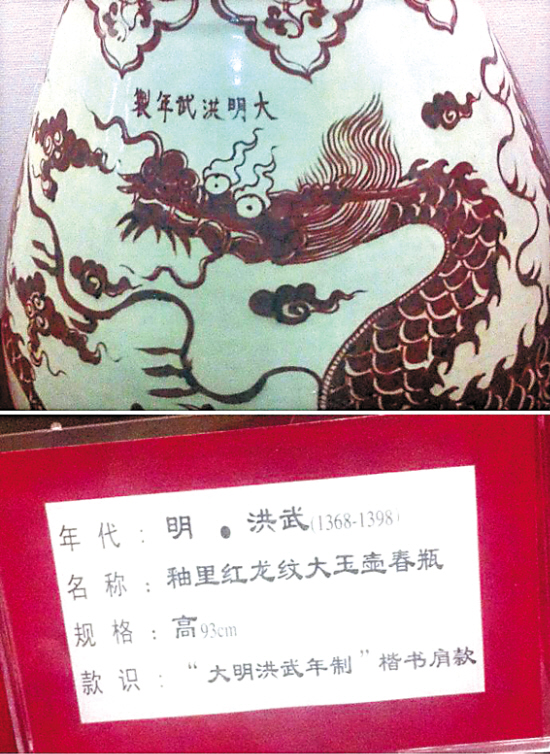 大明洪武年製
年代：明·洪武(1368-1398)
名称：釉里红龙纹大玉壶春瓶
规格：高93cm
款识：“大明洪武年制”楷书肩款